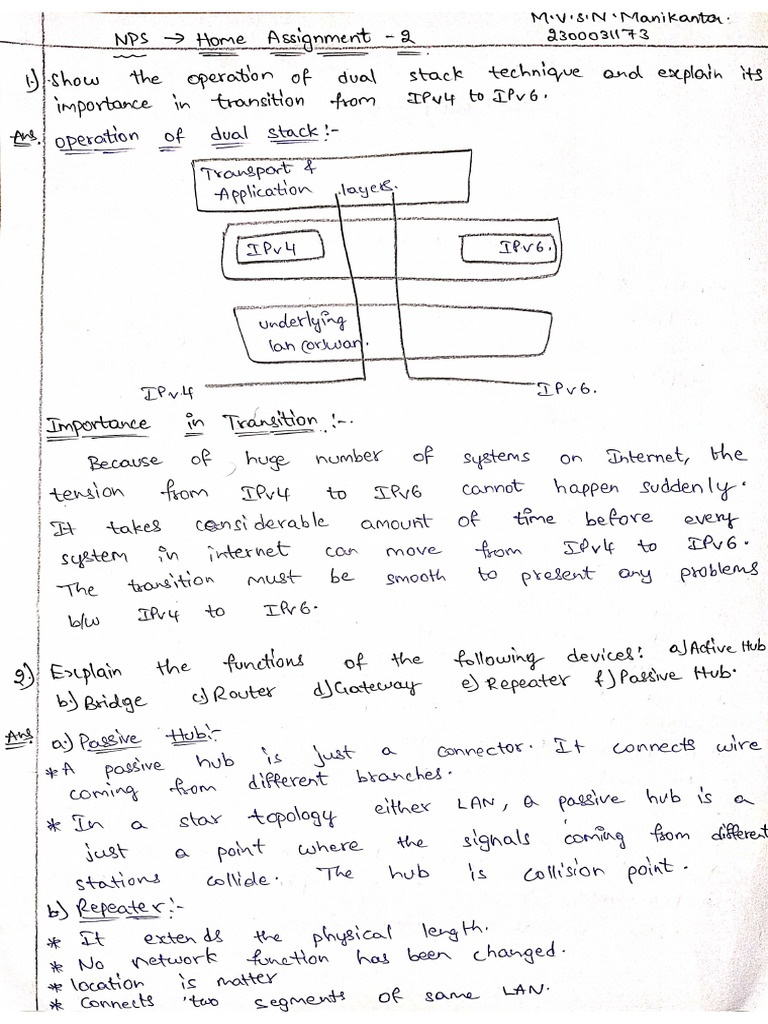 M.V.S.N. Manikanta.
NPS → Home Assignment - 2
2300031173
1.) Show the operation of dual stack technique and explain its
importance in transition from IPv4 to IPv6.
Ans. operation of dual stack:-
Transport &
Application layers.
IPv4 IPv6.
underlying
lan corwan.
IPv4 IPv6.
Importance in Transition :-.
Because of huge number of systems on Internet, the
tension from IPv4 to IPv6 cannot happen suddenly.
It takes considerable amount of time before every
system in internet can move from IPv4 to IPv6.
The transition must be smooth to present any problems
b/w IPv4 to IPv6.
2.) Explain the functions of the following devices: a) Active Hub
b) Bridge c) Router d) Gateway e) Repeater f) Passive Hub.
Ans. a.) Passive Hub:-
* A passive hub is just a connector. It connects wire
coming from different branches.
* In a star topology either LAN, a passive hub is a
just a point where the signals coming from different
stations collide. The hub is collision point.
b) Repeater:-
* It extends the physical length.
* No network function has been changed.
* location is matter
* Connects two segments of same LAN.